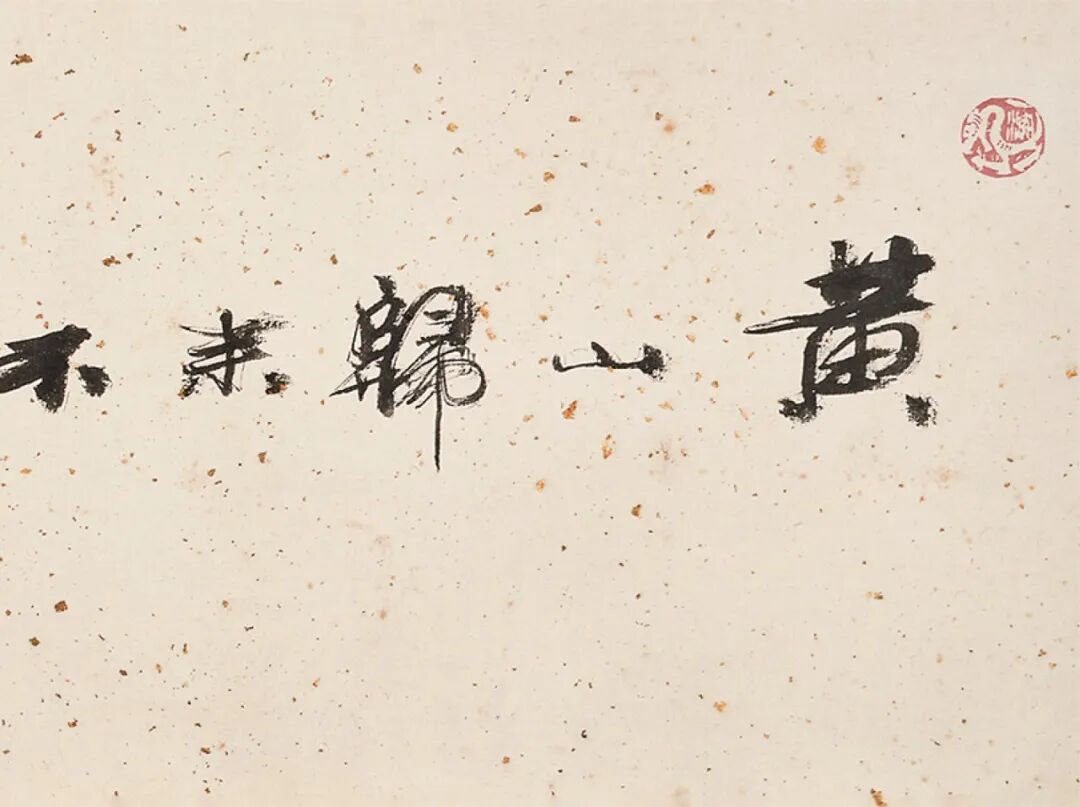 黄山歸来不